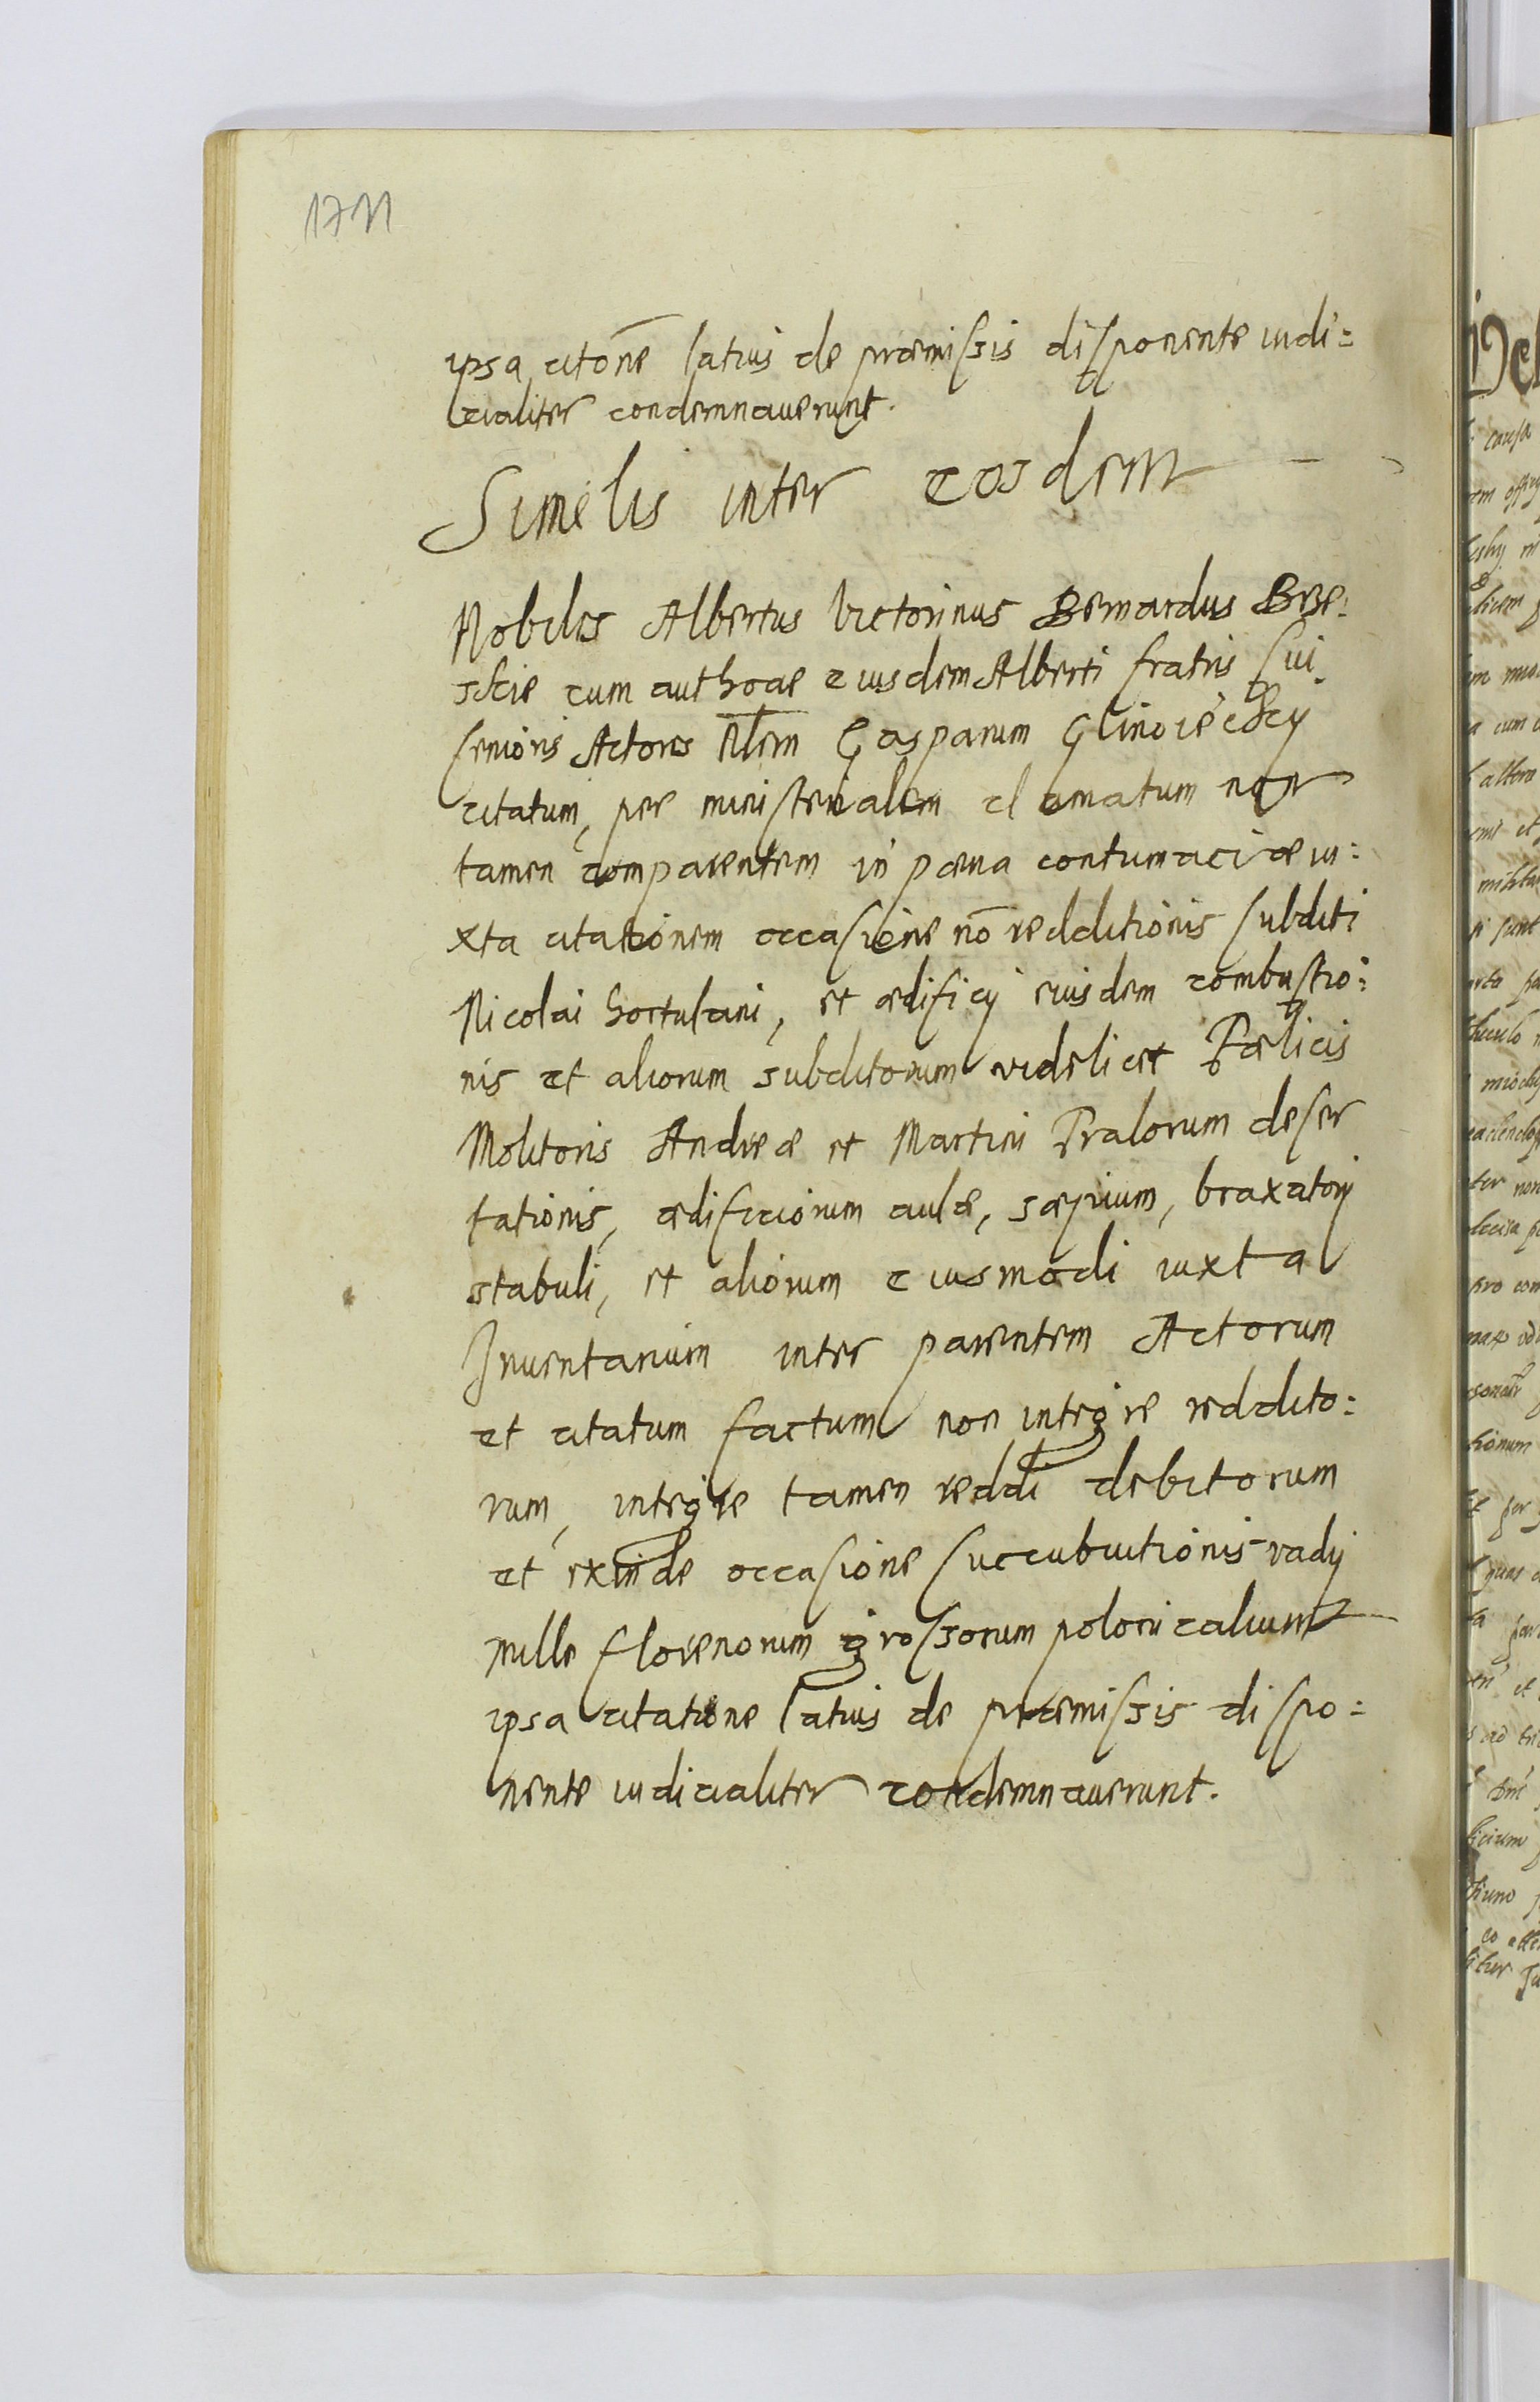 1711
ipsa citõne latius de præmissis disponente iudi=
cialiter condemnauerunt.
Similis inter eosdem
Nobiles Albertus Victorinus Bernardus Brze:
scie cum authore eiusdem Alberti fratris sui
senioris Actores Nlem Gasparum Glinoiecky
citatum, per ministerialem clamatum non
tamen comparentem in pæna contumaciæ iu:
xta citationem occasione nõ redditionis subditi
Nicolai hortulani, et ædificy eiusdem combustio:
nis et aliorum subditorum videlicet Fælicis
Molitoris Andreæ et Martini Pralorum deser
tationis, ædificiorum aulæ, sæpium, braxatory
stabuli, et aliorum eiusmodi iuxta
Inuentarium inter parentem Actorum
et citatum factum non integre reddito:
rum, integre tamen reddi debitorum
et exinde occasione succubuitionis vady
mille florenorum grossorum polonicalium
ipsa citatione latius de præmissis dispo:
nente iudicialiter condemnauerunt.